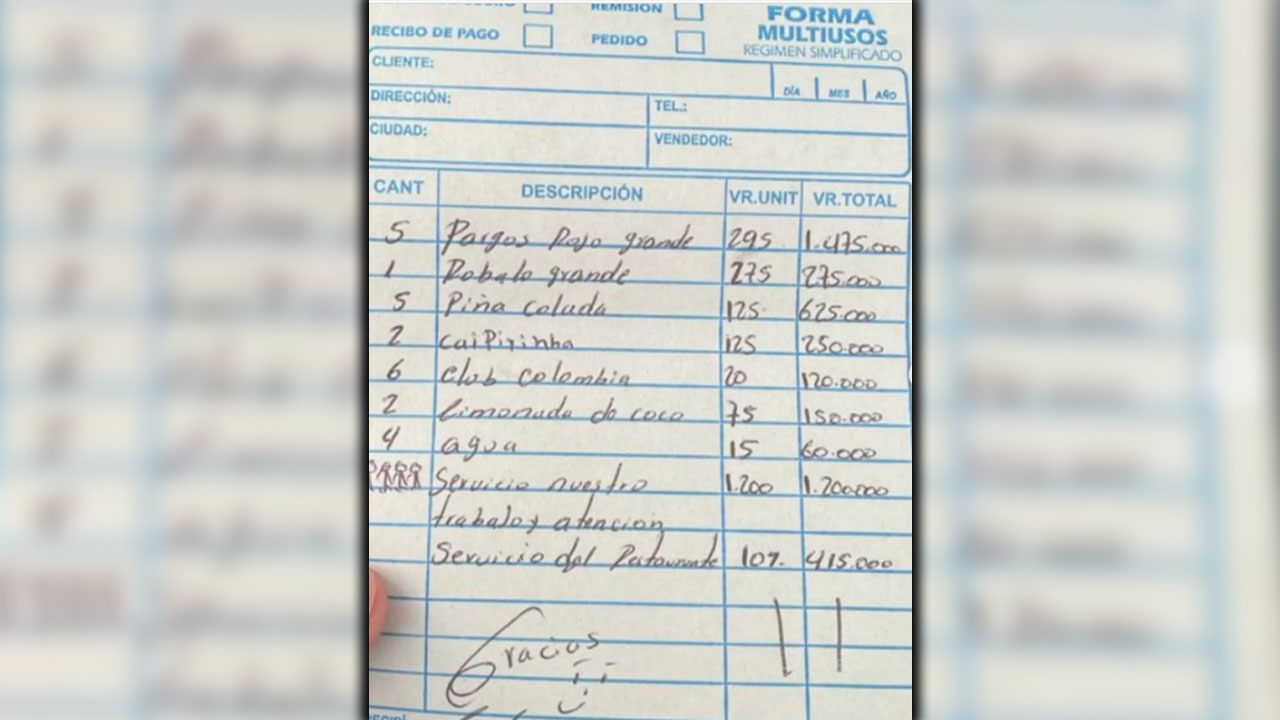 REMISION
FORMA
MULTIUSOS
REGIMEN SIMPLIFICADO
RECIBO DE PAGO
PEDIDO
CLIENTE:
DÍA MES AÑO
DIRECCIÓN:
TEL.:
CIUDAD:
VENDEDOR:
CANT DESCRIPCIÓN VR.UNIT VR.TOTAL
5 Pargos Rojo grande 295 1.475.000
1 Robalo grande 275 275.000
5 Piña Colada 125 625.000
2 CaiPirinha 125 250.000
6 Club Colombia 20 120.000
2 limonada de coco 75 150.000
4 agua 15 60.000
Servicio nuestro 1.200 1.200000
trabalo y atencion
Servicio del Restaurante 10% 415.000
Gracias